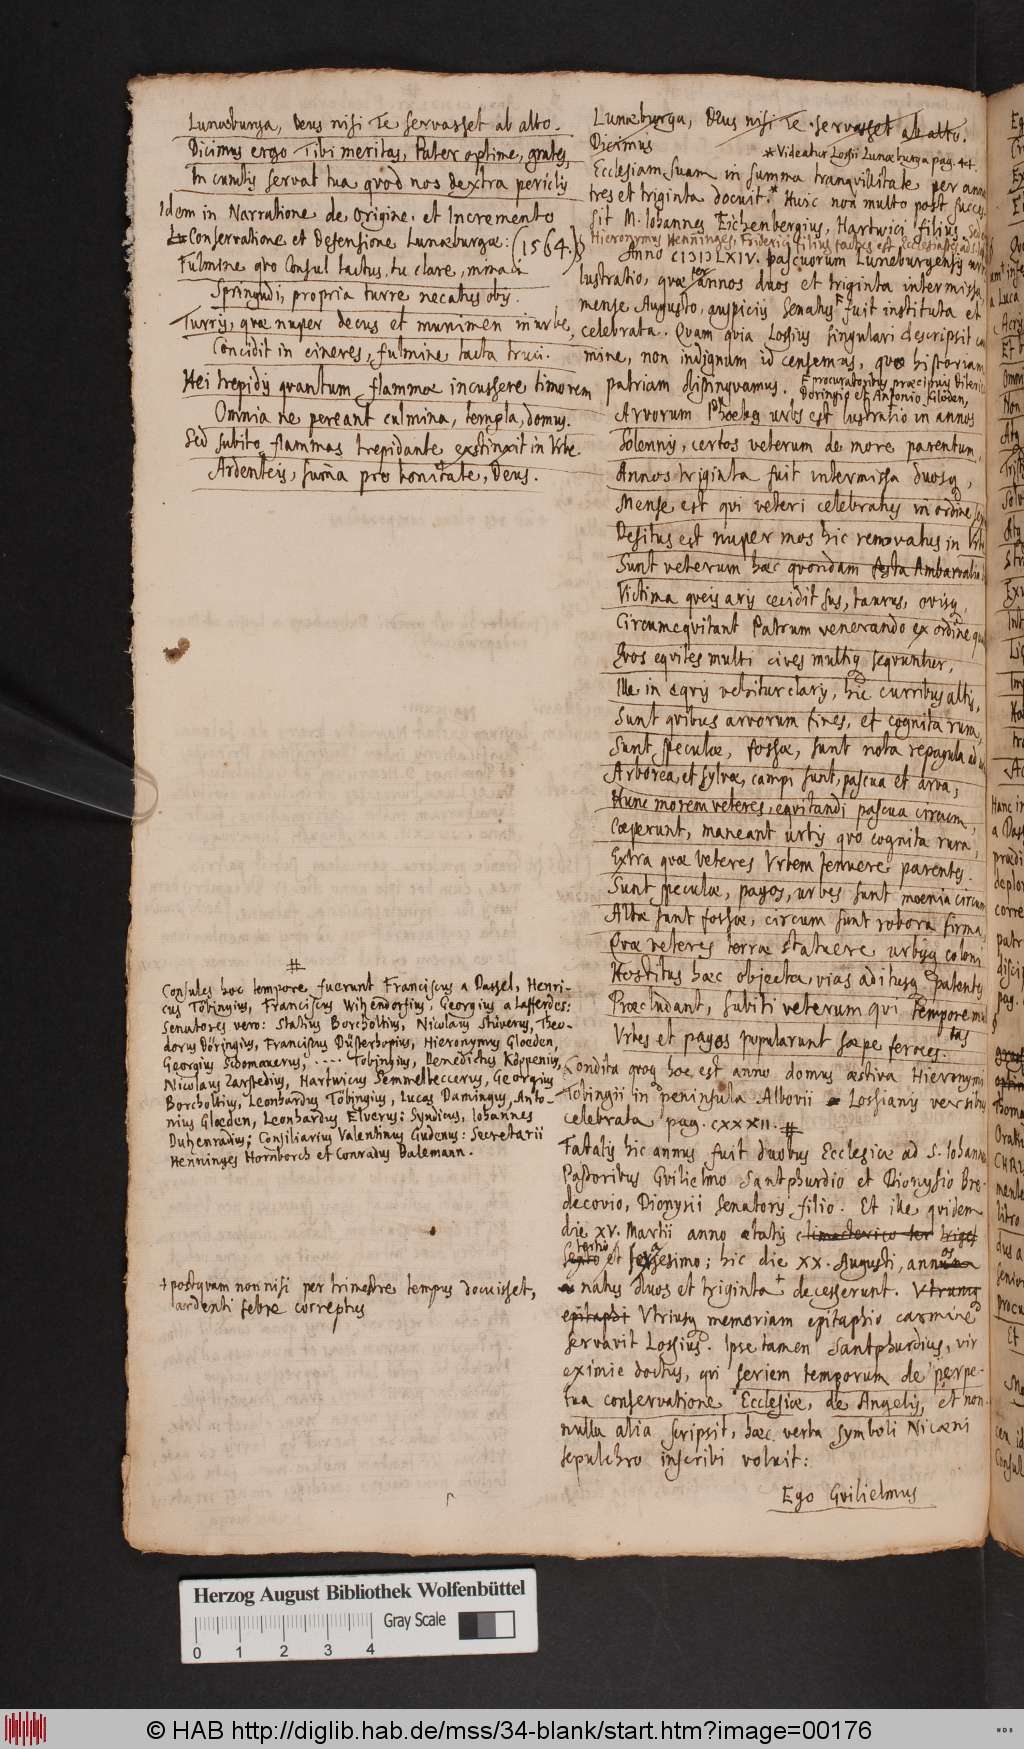 Lunæburga, Deus nisi Te servasset ab alto.
Dicimus ergo Tibi meritas, Pater optime, grates,
In cunctis servat tua quod nos dextra periclis
Idem in Narratione de Origine et Incremento
Conservatione et Defensione Lunæburgæ: (1564.)
Fulmine quo Consul tactus, tu clare,
Springudi, propria turre necatus obis.
Turris, quæ nuper decus et munimen in urbe,
Concidit in cineres, fulmine tacta truci.
Hei trepidis quantum flammæ incussere timorem
Omnia ne pereant culmina, templa, domus.
Sed subito flammas trepidante exstinxit in Urbe
Ardenteis, summa pro bonitate, Deus.
#
Consules hoc tempore fuerunt Franciscus a Dassel, Henri-
cus Töbingius, Franciscus Witzendorfius, Georgius a Lafferdes:
Senatores vero: Statius Borcholtius, Nicolaus Stüverus, Theo-
dorus Döringius, Franciscus Düsterhopius, Hieronymus Gloeden,
Georgius Schomaverus, ..... Tobingius, Benedictus Köppenius,
Nicolaus Zarstedius, Hartwicus Semmelbeccerus, Georgius
Borcholtius, Leonhardus Töbingius, Lucas Damingus, Anto-
nius Gloeden, Leonhardus Elverus: Syndicus, Iohannes
Dutzenradius; Consiliarius Valentinus Gudenus: Secretarii
Henninges Hornborch et Conradus Balemann.
+ postquam non nisi per trimestre tempus docuisset,
ardenti febre correptus
Lunæburga, Deus nisi Te servasset ab alto.
Dicimus
* Videatur Lossii Lunæburga pag. 44.
Ecclesiam suam in summa tranquillitate per annos
tres et triginta docuit.* Huic non multo post succes-
sit M. Iohannes Eichenbergius, Hartwici filius.
Hieronymus Henninges, Friderici filius factus est Ecclesiastes ad S.
Anno CIↃIↃLXIV. pascuorum Luneburgensis urbis
lustratio, quæ per annos duos et triginta intermissa,
mense Augusto, auspiciis Senatus F fuit instituta et
celebrata. Quam quia Lossius singulari descripsit car
mine, non indignum id censemus, quo historiam
patriam distinguamus. F procuratoribus præcipuis
Döringio et Antonio Glöden,
Arvorum Phœbeg urbs est lustratio in annos
Solennis, certos veterum de more parentum,
Annos triginta fuit intermissa duosq,
Mense est qui veteri celebratus in ordine
Desitus est nuper mos hic renovatus in Urbe
Sunt veterum hæc quondam festa Ambarvalia
Victima queis aris cecidit sus, taurus, ovisq,
Circumequitant Patrum venerando ex ordine
Quos equites multi cives multiq sequuntur,
Ille in equis vehitur claris, hic curribus altis,
Sunt quibus arvorum fines, et cognita rura,
Sunt speculæ, fossæ, sunt nota repagula ad
Arborea, et sylvæ, campi sunt, pascua et arva,
Hunc morem veteres, equitandi pascua circum,
Cœperunt, maneant urbis quo cognita rura,
Extra quæ veteres Urbem tenuere parentes.
Sunt speculæ, pagos, urbes sunt mœnia circum
Alta sunt fossæ, circum sunt robora firma,
Quæ veteres terræ statuere urbisq coloni
Hostibus hæc objecta vias aditusq patentes
Præcludant, subiti veterum qui tempore
Urbes et pagos popularunt sæpe feroces.
Condita quoq hoc est anno domus æstiva Hieronymi
Tobingii in peninsula Albovii Lossianis versibus
celebrata pag. CXXXII. #
Fatalis hic annus fuit duobus Ecclesiæ ad S. Iohannis
Pastoribus Gvilielmo Santphurdio et Dionysio Bro-
decovio, Dionysii Senatoris filio. Et ille quidem
die XV. Martii anno ætatis climacterico
tertio et sexagesimo; hic die XX. Augusti, annos
natus duos et triginta + decesserunt. Utrumq
epitaphi Utriusq memoriam epitaphio carmine
servavit Lossius. Ipse tamen Santphurdius, vir
eximie doctus, qui seriem temporum de perpe-
tua conservatione Ecclesiæ, de Angelis, et non-
nulla alia scripsit, hæc verba symboli Nicæni
sepulchro inscribi voluit:
Ego Gvilielmus
Herzog August Bibliothek Wolfenbüttel
Gray Scale
0 1 2 3 4
© HAB http://diglib.hab.de/mss/34-blank/start.htm?image=00176